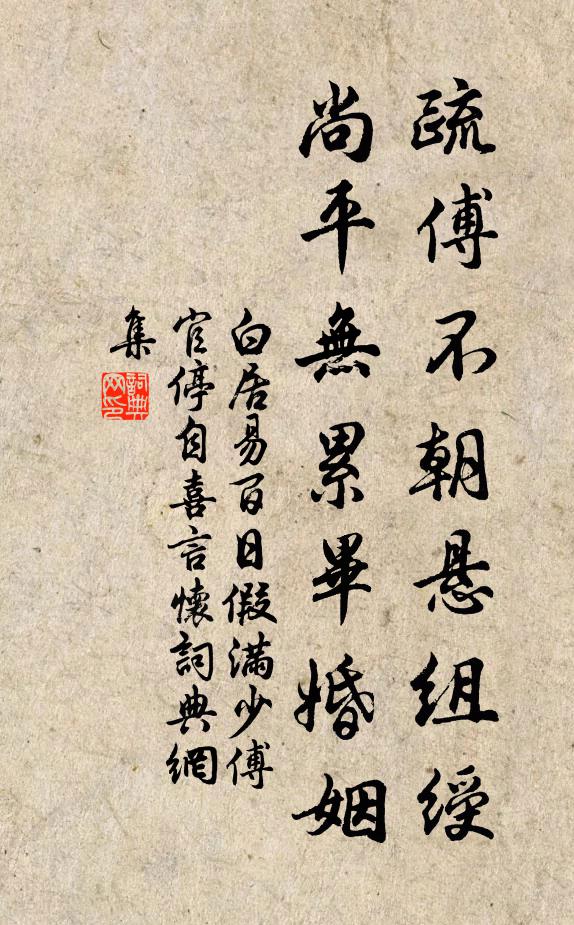 疏傅不朝懸組綬
尚平無累畢婚姻
白居易百日假滿少傅
官停自喜言懷詞典網
集
詞典
网印